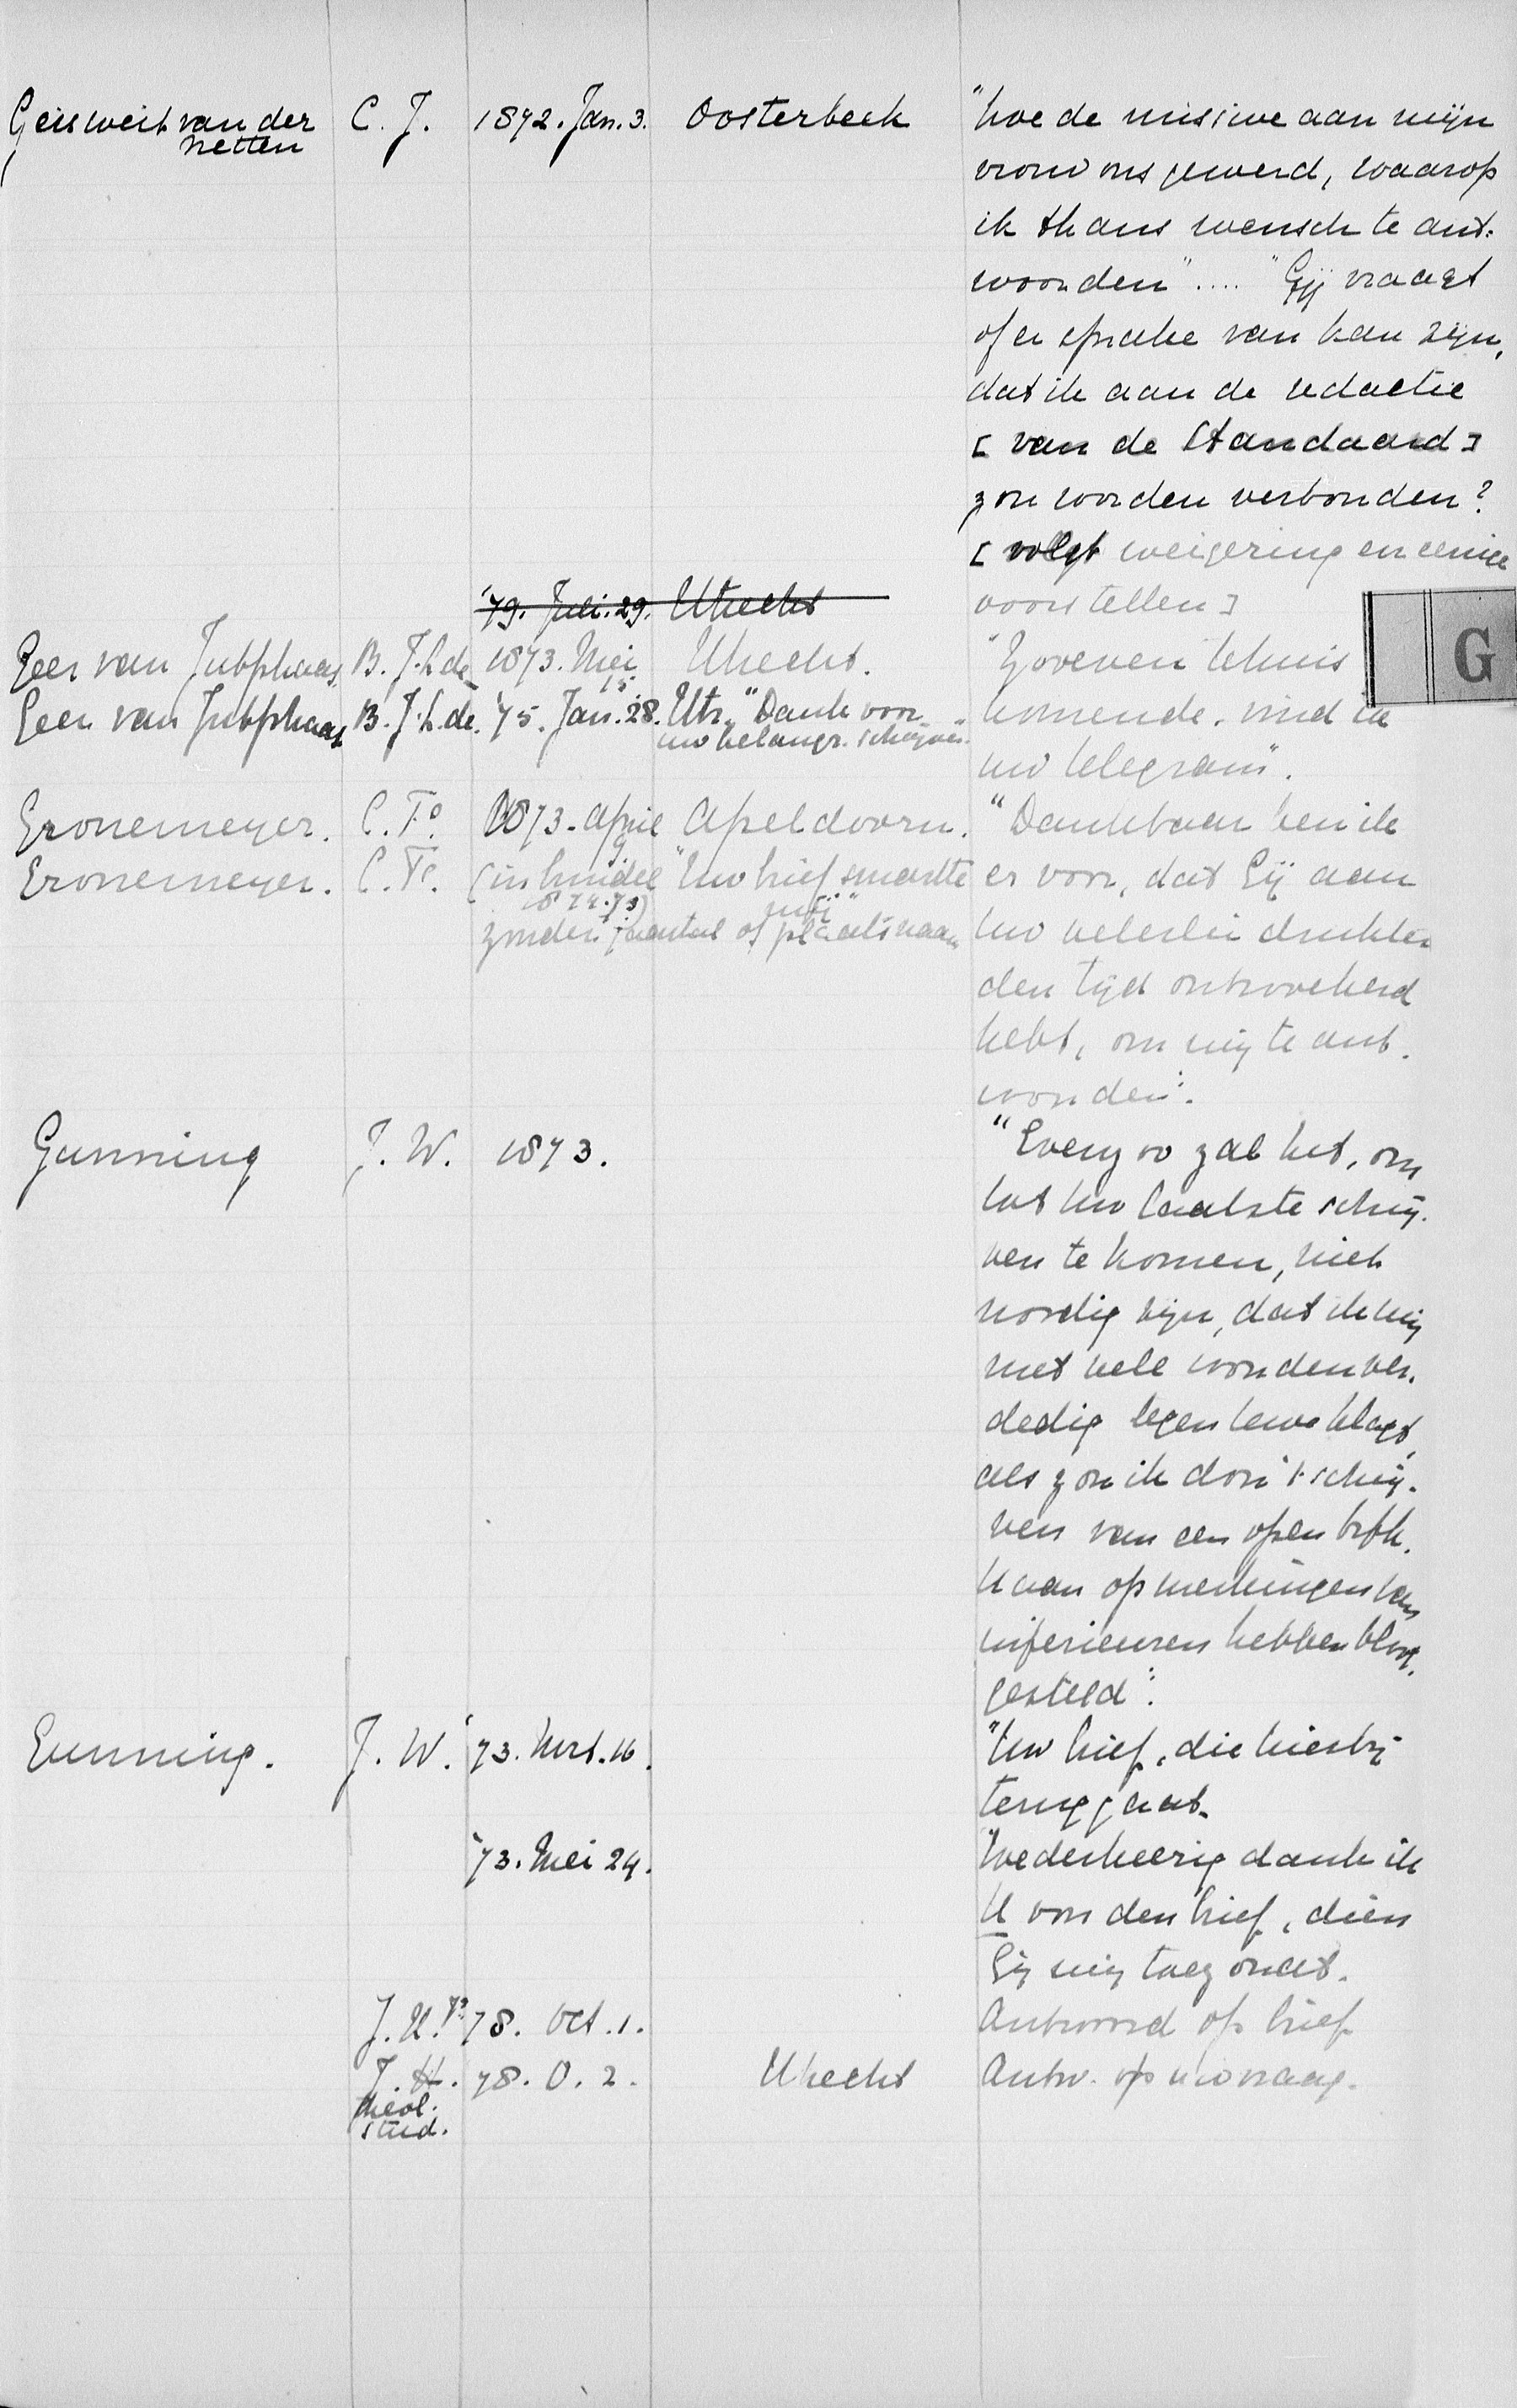 Geisweit van der C. J. 1872. Jan. 3. Oosterbeek "hoe de missive aan mijn
Netten
vrouw ons gewerd, waarop
ik thans wensch te ant-
woorden".... "Gij vraagt
of er sprake van kan zijn,
dat ik aan de redactie
[van de Standaard]
zou worden verbonden?
[volgt weigering en eenige
'79. Juli. 29. Utrecht voorstellen]
Geer van Jutphaas B. J. L. de 1873. Mei 15. Utrecht. "Zoveven thuis
G
Geer van Jutphaas B. J. L. de. '75. Jan. 28. Utr. "Dank voor komende, vind ik
uw belangr. schrijven.
uw telegram".
Gronemeyer. C. Fo. 1873. April 9 Apeldoorn. "Dankbaar ben ik
Gronemeyer. C. Fo. (in bundel "Uw brief smartte er voor, dat Gij aan
1872-73) mij"
zonder jaartal of plaatsnaam Uw velerlei drukten
den tijd ontwoekerd
hebt, om mij te ant-
woorden".
Gunning J. W. 1873. "Evenzoo zal het, om
tot Uw laatste schrij-
ven te komen, niet
noodig zijn, dat ik mij
met vele woorden ver-
dedig tegen Uwe klagt,
als zou ik door 't schrij-
ven van een open brfk.
U aan opmerkingen van
inferieuren hebben bloot-
gesteld".
Gunning. J. W. '73. Mrt. 16. "Uw brief, die hierbij
teruggaat.
'73. Mei 24. "Wederkeerig dank ik
U voor den brief, dien
Gij mij toezondt.
J. H. 78. Oct. 1. Antwoord op brief
J. H. 78. O. 2. Utrecht Antw. op uw vraag.
theol.
stud.